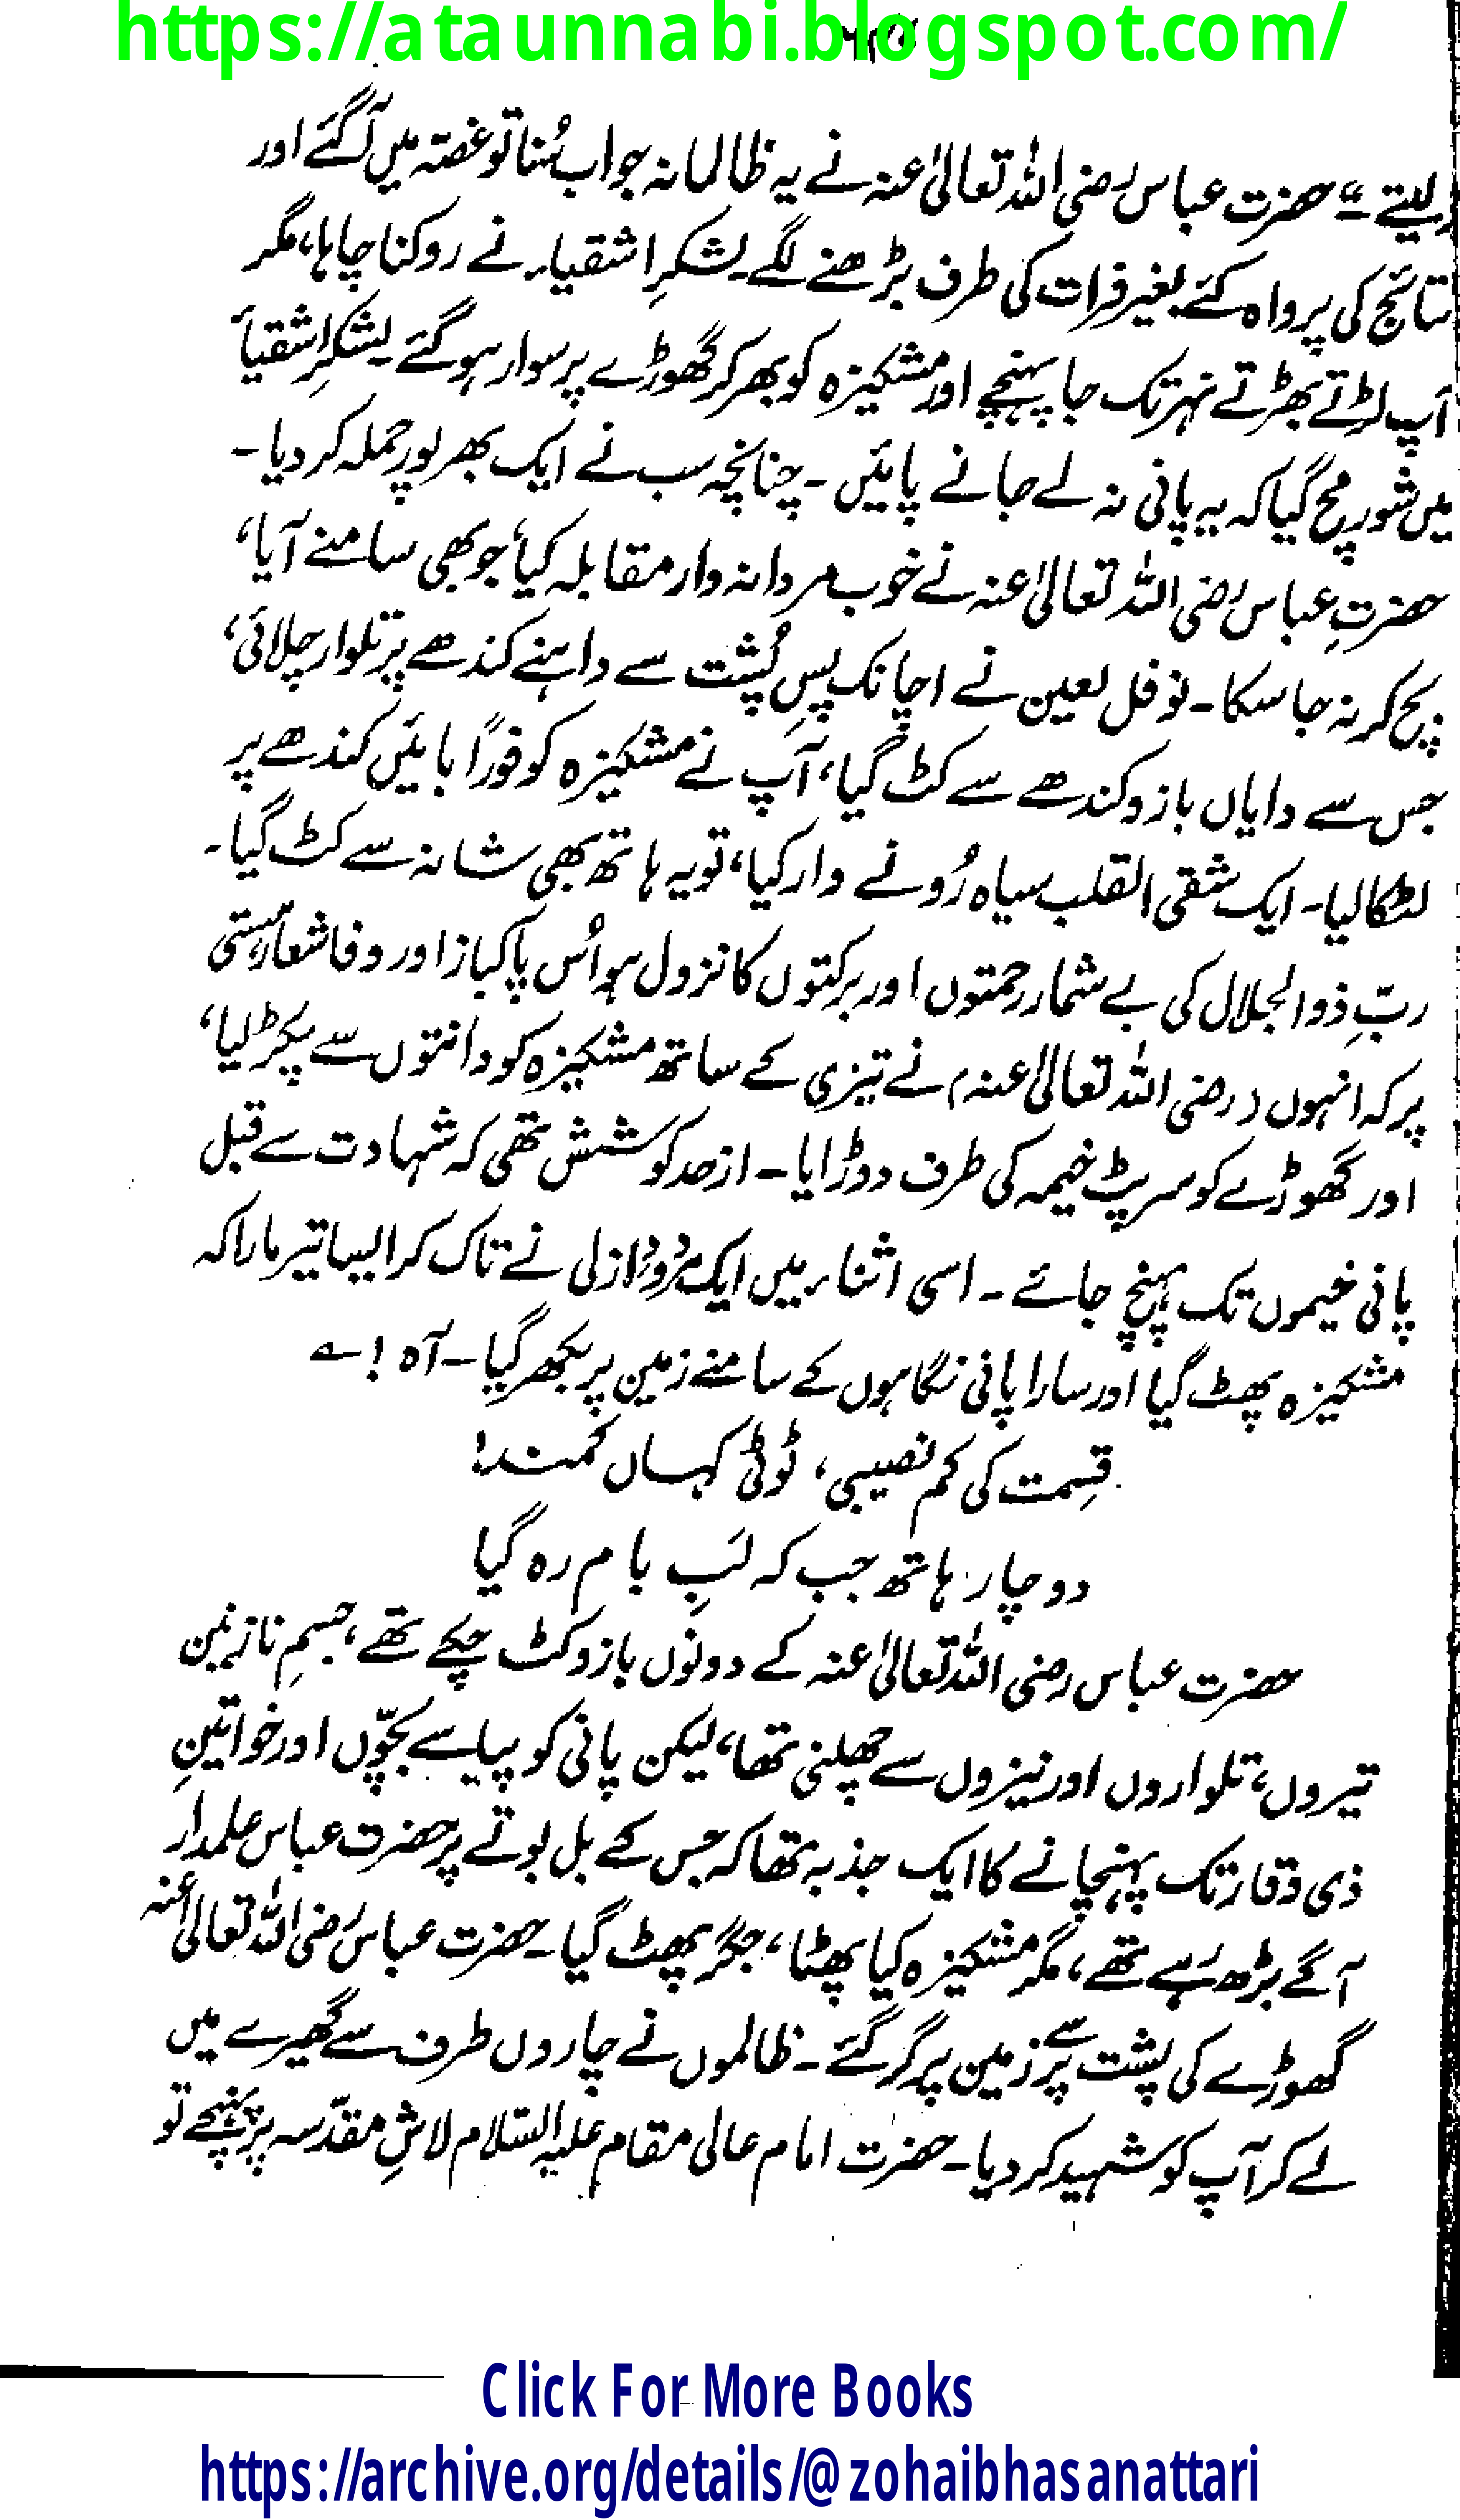 https://ataunnabi.blogspot.com/
لیتے ۔“ حضرت عباس رضی اللہ تعالیٰ عنہ نے یہ ظالمانہ جواب سُنا تو غصّہ میں آگئے اور
نتائج کی پرواہ کئے بغیر فرات کی طرف بڑھنے لگے۔ لشکرِ اشقیاء نے روکنا چاہا، مگر
آپ لڑتے بھڑتے نہر تک جا پہنچے اور مشکیزہ کو بھر کر گھوڑے پر سوار ہو گئے۔ لشکرِ اشقیأ
میں شور مچ گیا کہ یہ پانی نہ لے جانے پائیں ۔ چنانچہ سب نے ایک بھر پور حملہ کر دیا ۔
حضرتِ عباس رضی اللہ تعالیٰ عنہ نے خوب مردانہ وار مقابلہ کیا، جو بھی سامنے آیا،
بچ کر نہ جا سکا۔ نوفل لعین نے اچانک پسِ پُشت سے داہنے کندھے پر تلوار چلائی،
جس سے دایاں بازو کندھے سے کٹ گیا، آپ نے مشکیزہ کو فورًا بائیں کندھے پر
لٹکا لیا۔ ایک شقی القلب سیاہ رُو نے وار کیا، تو یہ ہاتھ بھی شانہ سے کٹ گیا۔
ربِّ ذوالجلال کی بے شمار رحمتوں اور برکتوں کا نزول ہو اُس پاکباز اور وفا شعار ہستی
پر کہ انہوں (رضی اللہ تعالیٰ عنہ) نے تیزی کے ساتھ مشکیزہ کو دانتوں سے پکڑ لیا،
اور گھوڑے کو سرپٹ خیمہ کی طرف دوڑایا ۔ ازحد کوشش تھی کہ شہادت سے قبل
پانی خیموں تک پہنچ جائے ۔ اسی اثناء میں ایک مردُودِ ازلی نے تاک کر ایسا تیر مارا کہ
مشکیزہ پھٹ گیا اور سارا پانی نگاہوں کے سامنے زمین پر بکھر گیا ۔ آہ ! ؎
قسمت کی کم نصیبی، ٹوٹی کہاں کمند!
دو چار ہاتھ جب کہ لبِ بام رہ گیا
حضرت عباس رضی اللہ تعالیٰ عنہ کے دونوں بازو کٹ چکے تھے، جسمِ نازنین
تیروں، تلواروں اور نیزوں سے چھلنی تھا، لیکن پانی کو پیاسے بچّوں اور خواتینِ
ذی وقار تک پہنچانے کا ایک جذبہ تھا کہ جس کے بل بوتے پر حضرت عباس علمدار
آگے بڑھ رہے تھے، مگر مشکیزہ کیا پھٹا، جگر پھٹ گیا۔ حضرت عباس رضی اللہ تعالیٰ عنہ
گھوڑے کی پشت پر سے زمین پر گر گئے ۔ ظالموں نے چاروں طرف سے گھیرے میں
لے کر آپ کو شہید کر دیا۔ حضرت امام عالی مقام علیہ السّلام لاشِ مقدّسہ پر پہنچے تو
Click For More Books
https://archive.org/details/@zohaibhasanattari